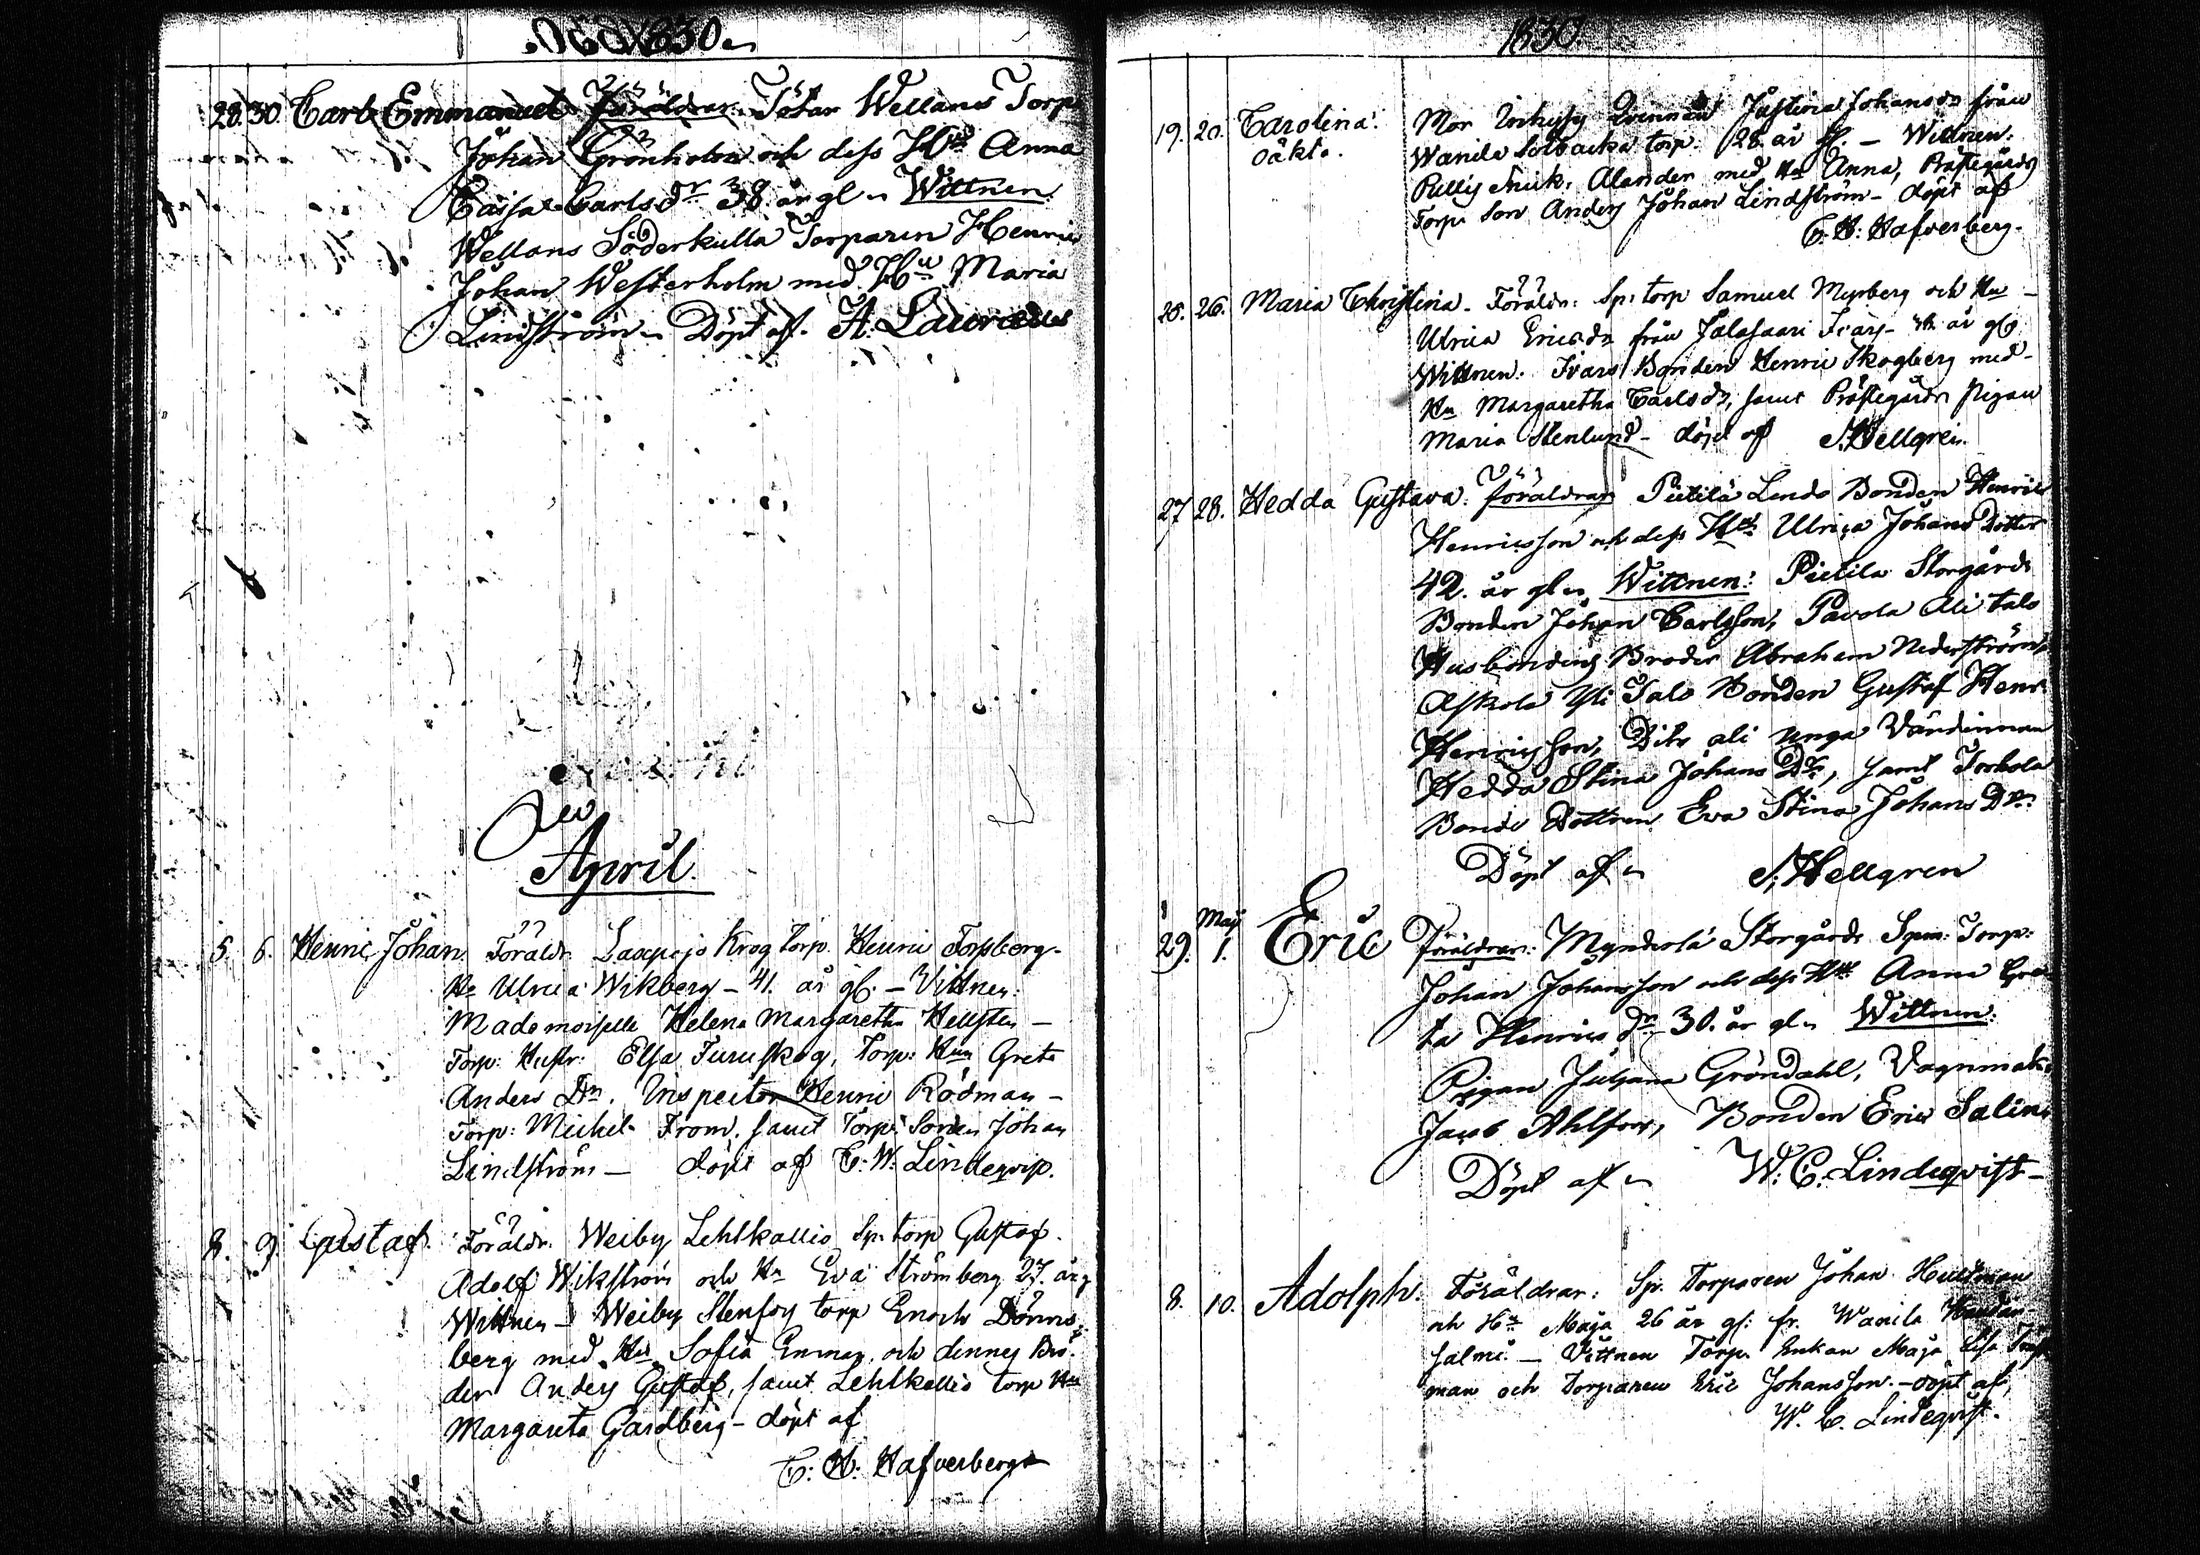 1830
28. 30 Carl Emmanuel Föräldrar Tötar Wellans Torp
Johan Grönholm och dess Hu Anna
Caisa Carlsdr 38 år gl Wittnen
Wellans Söderkulla Torparen Henric
Johan Westerholm med Hu Maria
Lindström Döpt af A. Lauræus
April
5. 6. Henric Johan. Föräldr. Laxpojo Krog Torp. Henric Forssberg
Hu Ulrica Wikberg – 41. år gl. – Vittnen:
Mademoiselle Helena Margaretha Hellsten –
Torp: Hustr: Elsa Furuskog, Torp: Hun Greta
Anders Dr. Inspector Henric Rodman –
Torp: Michel From, samt Torp: Sonen Johan
Lindström – döpt af C. W. Lindeqvist.
8. 9. Gustaf. Föräldr. Weiby Lehtkallio Sp: torp Gustaf
Adolf Wikström och Hu Eva Strömberg 27. år g
Wittnen – Weiby Stensoy torp Enoch Dönns-
berg med Hu Sofia Enman och dennes Bro-
der Anders Gustaf, samt Lehtkallio torp Hu
Margareta Gardberg – döpt af
C. H. Hafverberg
1830.
19. 20. Carolina. Mor Qvinnan Justina Johansdr från
oäkta. Wanila Solbacka torp. 28 år gl. – Wittnen.
Alander med Hu Anna, Prästegårds
Torp: Son Anders Johan Lindström – döpt af
C. H. Hafverberg.
25. 26. Maria Christina. Föräldr: Sp: torp Samuel Myrberg och Hu –
Ulrica Ericsdr från Jalasaari år gl
Wittnen. Ivars Bonden Henric Skogberg med –
Hu Margaretha Carlsdr, samt Prästegårds Pigan
Maria Stenlund – döpt af S. Hellgren.
27 28. Hedda Gustava. föräldrar Pietilä Lends Bonden Henric
Henricsson och dess Hu Ulrica Johans Dotter
42. år gl Wittnen: Pietila Storgårds
Bonden Johan Carlsson, Pavola Ali talo
Husbondens Broder Abraham Nederström,
Askola Yli Talo Bonden Gustaf Henr.
Henricsson, Dito ali unga Värdinnan
Hedda Stina Johans Dr, samt Torkola
Bonde Dottren Eva Stina Johans Dr.
Döpt af S. Hellgren
May
29. 1. Eric Föräldrar: Myndrolä Storgårds Spm: Torp:
Johan Johansson och dess Hu Anna Gre-
ta Henricsdr 30. år gl Wittnen:
Pigan Juliana Gröndahl, Vagnmak.
Jacob Ahlfors, Bonden Eric Salin
Döpt af W. C. Lindeqvist –
8. 10. Adolph. Föräldrar: Sp. Torparen Johan Hultman
och Hu Maja 26 år gl: fr. Wanila
salmi. – Vittnen Torp. Enkan Maja Lisa
man och Torparen Eric Johansson. – döpt af
W. C. Lindeqvist.